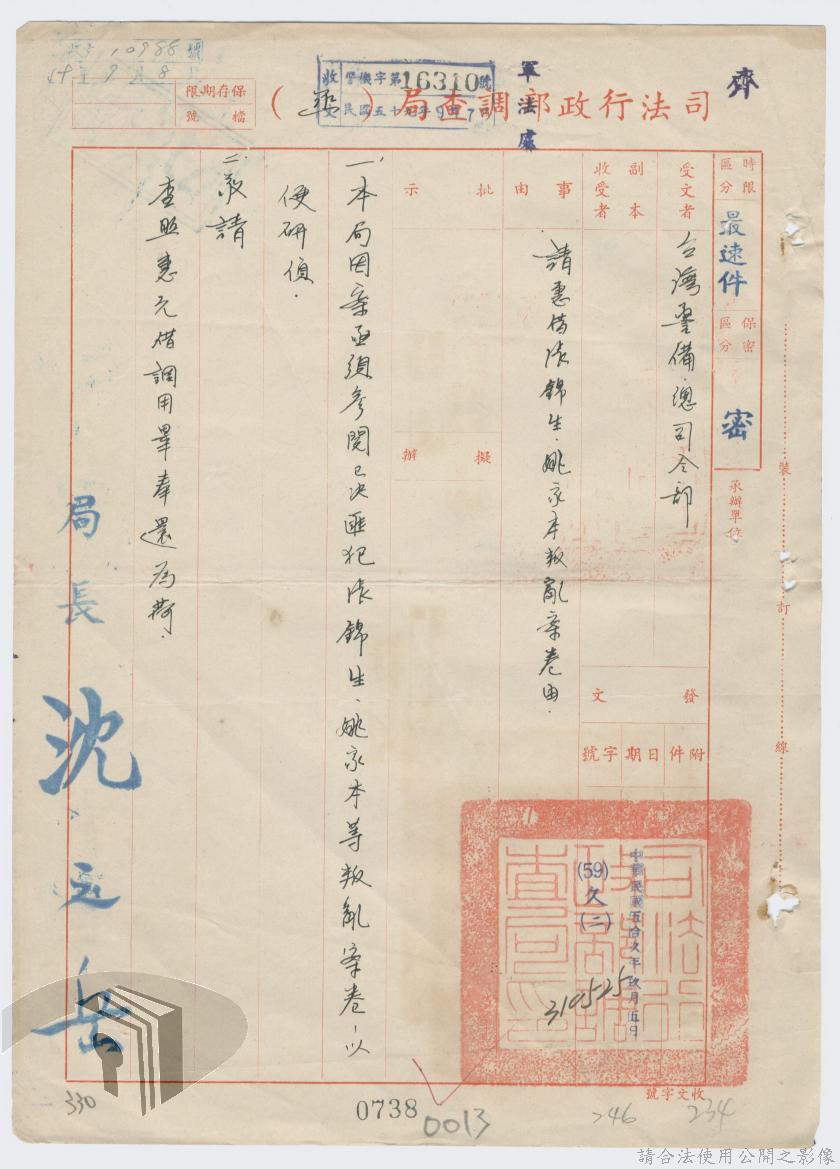 10988號
59年9月8日
保存期限
檔號
收文 警機字第16310號
民國五十九年9月7日
軍法處
齊
司法行政部調查局（ ）
時限區分
最速件
保密區分
密
承辦單位
受文者
台灣警備總司令部
副本收受者
發文
附件
日期
字號
中華民國五拾久年玖月伍日
(59)久(二)
310525
司法行政部調查局印
事由
請惠借張錦生、姚家本叛亂案卷由．
批示
擬辦
一、本局因案亟須參閱已決匪犯張錦生、姚家本等叛亂案卷，以
便研偵．
二、敬請
查照惠允借調用畢奉還為荷．
局長沈之岳
裝
訂
線
收文字號
330
0738
0013
246
234
請合法使用公開之影像